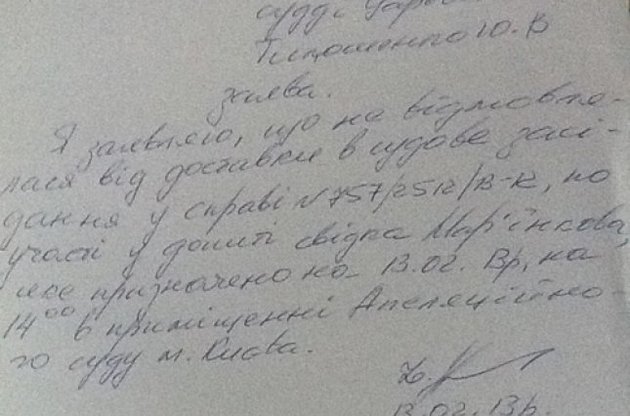 судді
Тимошенко Ю. В
заява.
Я заявляю, що не відмовля-
лася від доставки в судове засі-
дання у справі №757/2512/13-к, по
участі у допиті свідка Мар'їнкова,
яке призначено на 13.02. 13р, на
14⁰⁰ в приміщенні Апеляційно-
го суду м. Києва.
13.02. 13р